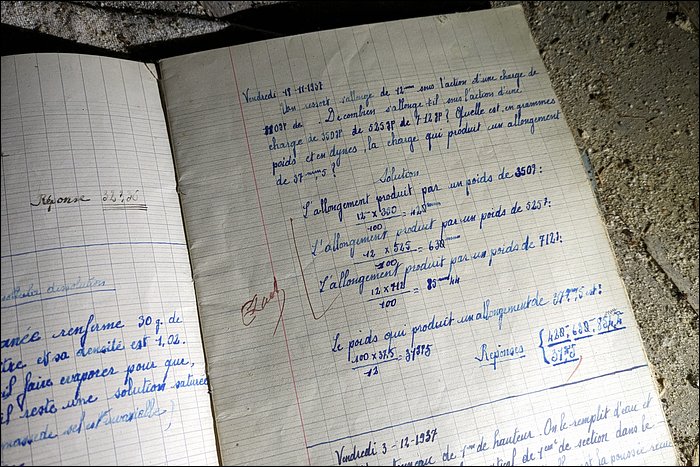 Réponse 32,96
dissolution
renferme 30 g. de
et sa densité est 1,02.
faire évaporer pour que,
reste une solution saturée
Vendredi 19-11-1937
Un ressort s'allonge de 12 mm sous l'action d'une charge de
100g. De combien s'allonge-t-il sous l'action d'une
charge de 350gr de 525gr de 712gr? Quelle est, en grammes
poids et en dynes, la charge qui produit un allongement
de 37mm,5?
Solution
L'allongement produit par un poids de 350g:
12 × 350 / 100 = 42mm
L'allongement produit par un poids de 525g:
12 × 525 / 100 = 63mm
L'allongement produit par un poids de 712g:
12 × 712 / 100 = 85mm,44
Exact
Le poids qui produit un allongement de 37mm,5 est:
100 × 37,5 / 12 = 312g5
Réponses
Vendredi 3-12-1937
de 1m de hauteur. On le remplit d'eau et
de 1cm² de section dans le